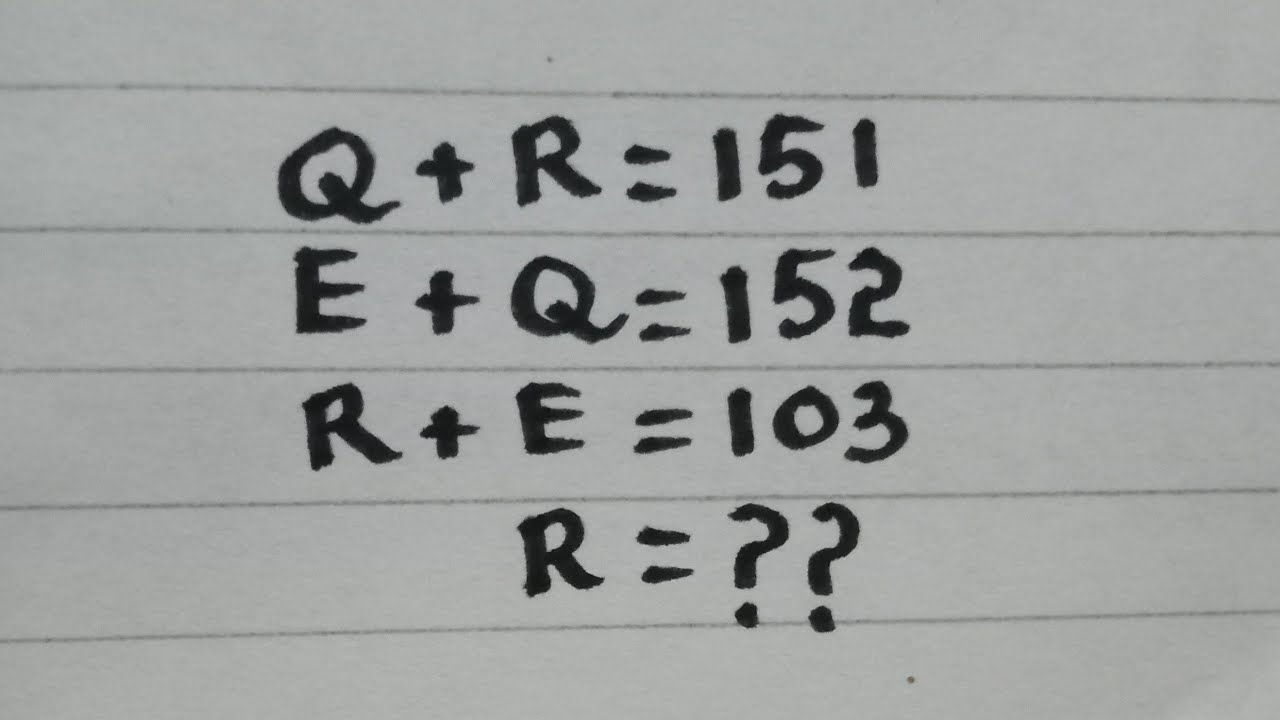 Q + R = 151
E + Q = 152
R + E = 103
R = ??